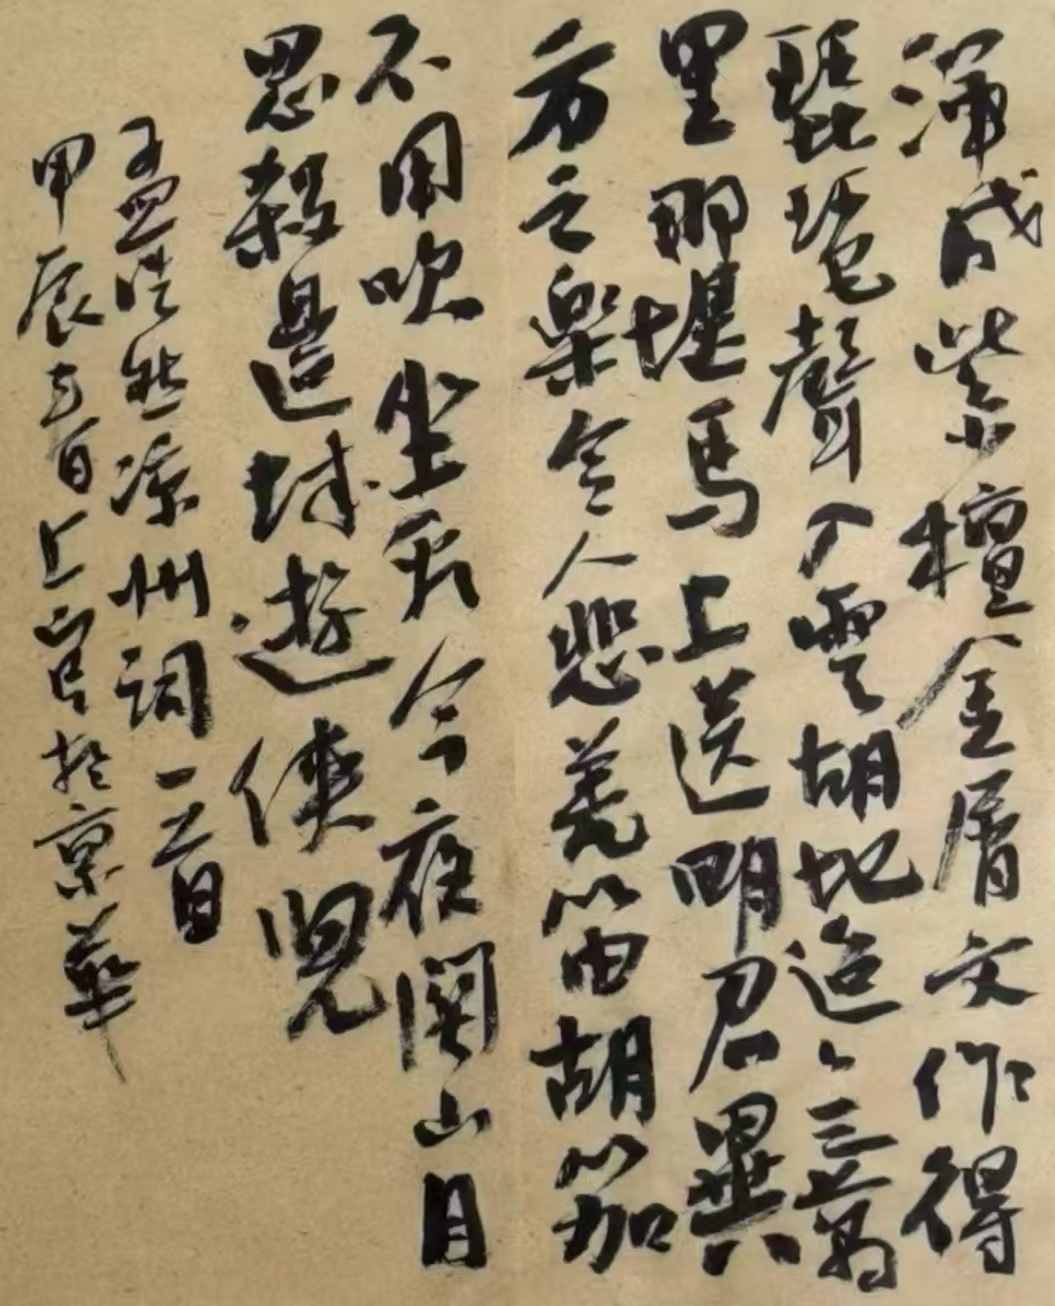 渾成紫檀金屑文作得
琵琶聲入雲胡地迢々三萬
里那堪馬上送明君異
方之樂令人悲羌笛胡笳
不用吹坐看今夜關山月
思殺邊城遊俠兒
孟浩然涼州詞一首
甲辰 於京華